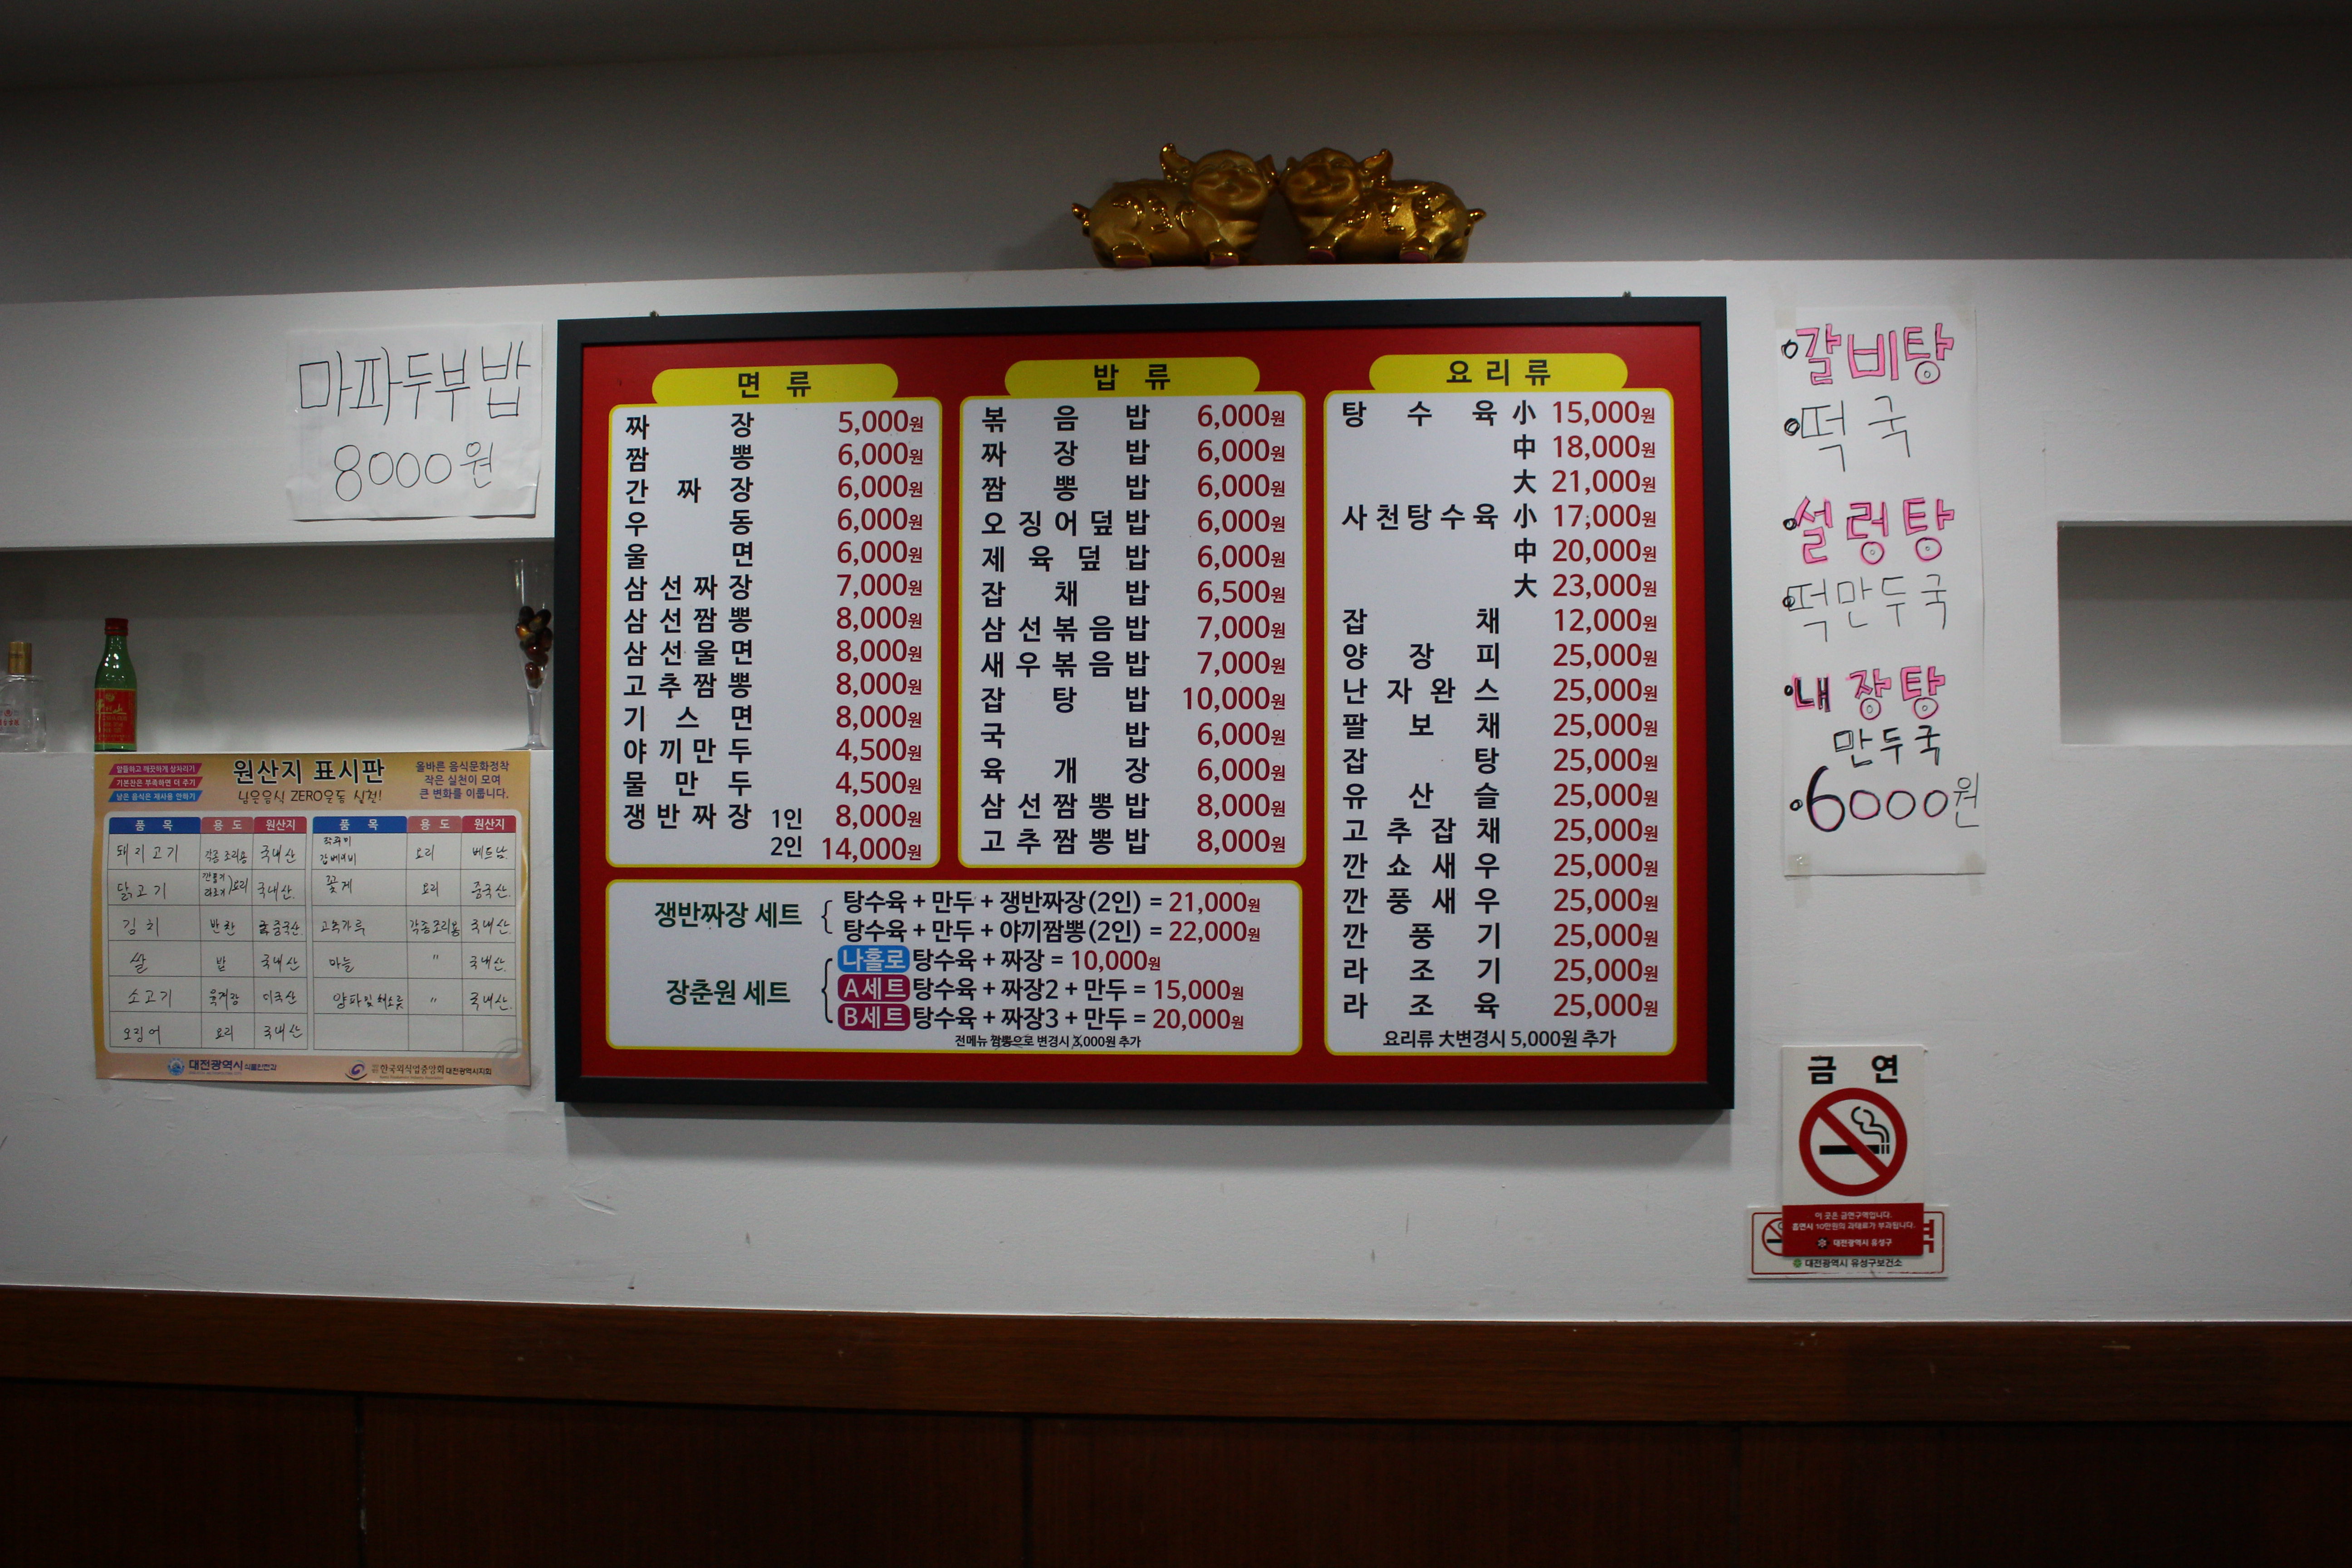 마파두부밥
8000원
면 류
짜 장 5,000원
짬 뽕 6,000원
간 짜 장 6,000원
우 동 6,000원
울 면 6,000원
삼 선 짜 장 7,000원
삼 선 짬 뽕 8,000원
삼 선 울 면 8,000원
고 추 짬 뽕 8,000원
기 스 면 8,000원
야 끼 만 두 4,500원
물 만 두 4,500원
쟁 반 짜 장 1인 8,000원
2인 14,000원
밥 류
볶 음 밥 6,000원
짜 장 밥 6,000원
짬 뽕 밥 6,000원
오 징 어 덮 밥 6,000원
제 육 덮 밥 6,000원
잡 채 밥 6,500원
삼 선 볶 음 밥 7,000원
새 우 볶 음 밥 7,000원
잡 탕 밥 10,000원
국 밥 6,000원
육 개 장 6,000원
삼 선 짬 뽕 밥 8,000원
고 추 짬 뽕 밥 8,000원
요 리 류
탕 수 육 小 15,000원
中 18,000원
大 21,000원
사 천 탕 수 육 小 17,000원
中 20,000원
大 23,000원
잡 채 12,000원
양 장 피 25,000원
난 자 완 스 25,000원
팔 보 채 25,000원
잡 탕 25,000원
유 산 슬 25,000원
고 추 잡 채 25,000원
깐 쇼 새 우 25,000원
깐 풍 새 우 25,000원
깐 풍 기 25,000원
라 조 기 25,000원
라 조 육 25,000원
요리류 大변경시 5,000원 추가
쟁반짜장 세트
탕수육 + 만두 + 쟁반짜장(2인) = 21,000원
탕수육 + 만두 + 야끼짬뽕(2인) = 22,000원
장춘원 세트
나홀로 탕수육 + 짜장 = 10,000원
A세트 탕수육 + 짜장2 + 만두 = 15,000원
B세트 탕수육 + 짜장3 + 만두 = 20,000원
전메뉴 짬뽕으로 변경시 ,000원 추가
갈비탕
떡국
설렁탕
떡만두국
내장탕
만두국
6000원
알뜰하고 깨끗하게 상차리기
기본찬은 부족하면 더 주기
남은 음식은 재사용 안하기
원산지 표시판
남은음식 ZERO운동 실천!
올바른 음식문화정착
작은 실천이 모여
큰 변화를 이룹니다.
품 목 용 도 원산지 품 목 용 도 원산지
돼지고기 각종요리용 국내산 요리 베트남
닭고기 요리 국내산 꽃게 요리 중국산
김치 반찬 중국산 고춧가루 각종요리용 국내산
쌀 밥 국내산 마늘 " 국내산
소고기 육개장 미국산 양파및채소류 " 국내산
오징어 요리 국내산
대전광역시 식품안전과
한국외식업중앙회 대전광역시지회
금 연
이 곳은 금연구역입니다.
흡연시 10만원의 과태료가 부과됩니다.
대전광역시 유성구
역
대전광역시 유성구보건소